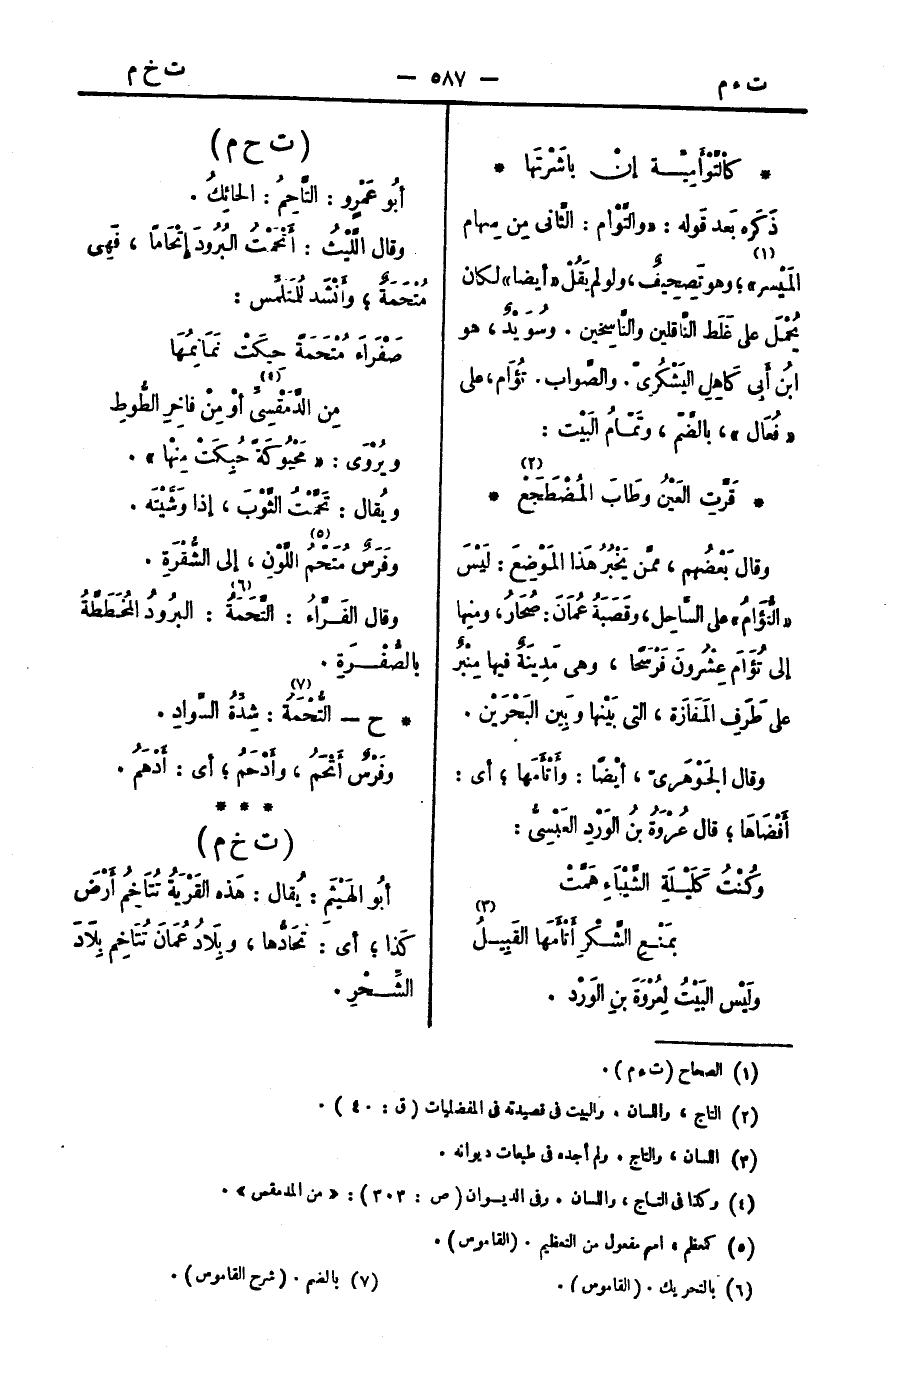 ت ء م
— ٥٨٧ —
ت خ م
* كَالتُّؤَامِيَّـة إنْ بَاشَرْتَها *
ذَكَره بَعد قَوله : «والتَّوأم : الثّانى مِن سِهام
(١)
المَيْسر» ؛ وهو تَصحِيفٌ ، ولو لم يَقُلْ «أيضا» لكان
يُحْمَل على غَلَط النّاقلين والنّاسخين . وسُوَيدٌ ، هو
ابنُ أبى كاهِلٍ اليَشْكُرِىّ . والصَّواب . تُؤَام ، على
«فُعَال» ، بالضَّمّ ، وتَمَـامُ البَيْت :
(٢)
* قَرَّتِ العَيْنُ وطَابَ المُضْطَجَعْ *
وقال بَعْضُهم ، ممَّن يَخْبُرُ هَذا المَوْضِعَ : لَيْسَ
«التُّؤَامُ» على السَّاحِل ، وقَصَبَةُ عُمَانَ : صُحَارُ ، ومنها
إلى تُؤَامَ عِشْرُونَ فَرْسَخًا ، وهى مَدِينَةٌ فيها مِنْبَرٌ
على طَرَفِ المَفَازَة ، التى بَيْنَها وبَين البَحْرَيْن .
وقال الجَوْهَرِىّ ، أيْضًا : وأَتْأَمَها ؛ أى :
أَفْضَاهَا ؛ قال عُرْوَةُ بنُ الوَرْدِ العَبْسِىُّ :
وكُنْتُ كَلَيْـلَةِ الشَّيْبَاءِ هَمَّتْ
(٣)
بمَنْـعِ الشَّـكْرِ أَتْأَمَها القَبِيـلُ
ولَيْس البَيْتُ لِعُرْوَةَ بنِ الوَرْد .
(ت ح م)
أبُو عَمْرٍو : التَّاحِمُ : الحائِكُ .
وقال اللَّيْثُ : أَتْحَمْتُ البُرُودَ إتْحَامًا ، فَهِى
مُتْحَمَةٌ ؛ وأَنْشَد لِلمُتَلَمِّس :
صَفْرَاءَ مُتْحَمَةً حِيكَتْ نَمَانِمُهَا
(٤)
مِن الدِّمَقْسِىِّ أوْ مِنْ فاخِرِ الطُّوطِ
ويُرْوَى : «مَحْبُوكَةً حُبِكَتْ مِنْها» .
ويُقال : تَحَّمْتُ الثَّوْبَ ، إذا وَشَّيْتَه .
(٥)
وفَرَسٌ مُتَحَّمُ اللَّوْنِ ، إلى الشُّقْرَةِ .
(٦)
وقال الفَـرَّاءُ : التَّحَمَةُ : البُرُودُ المُخَطَّطَةُ
بالصُّفْـرَةِ .
(٧)
* ح — التُّحْمَةُ : شِدَّةُ السَّوادِ .
وفَرَسٌ أَتْحَمُ ، وأَدْحَمُ ؛ أى : أَدْهَمُ .
* * *
(ت خ م)
أبُو الهَيْثَمِ : يُقال : هَذه القَرْيَةُ تُتَاخِمُ أَرْضَ
كَذا ؛ أى : تُحَادُّها ، وبِلَادُ عُمَانَ تُتَاخِم بِلَادَ
الشِّـحْرِ .
(١) الصحاح (ت ء م) .
(٢) التاج ، واللسان . والبيت فى قصيدته فى المفضليات ( ق : ٤٠ ) .
(٣) اللسان ، والتاج . ولم أجده فى طبعات ديوانه .
(٤) وكذا فى التـاج ، واللسان . وفى الديـوان ( ص : ٣٠٣ ) : «من المدمقس» .
(٥) كمعظم ، اسم مفعول من التعظيم . (القاموس) .
(٦) بالتحريك . (القاموس) .
(٧) بالضم . (شرح القاموس) .